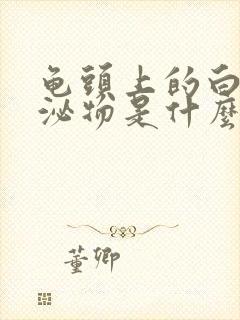 龟頭上的白
泌物是什麼
董卿